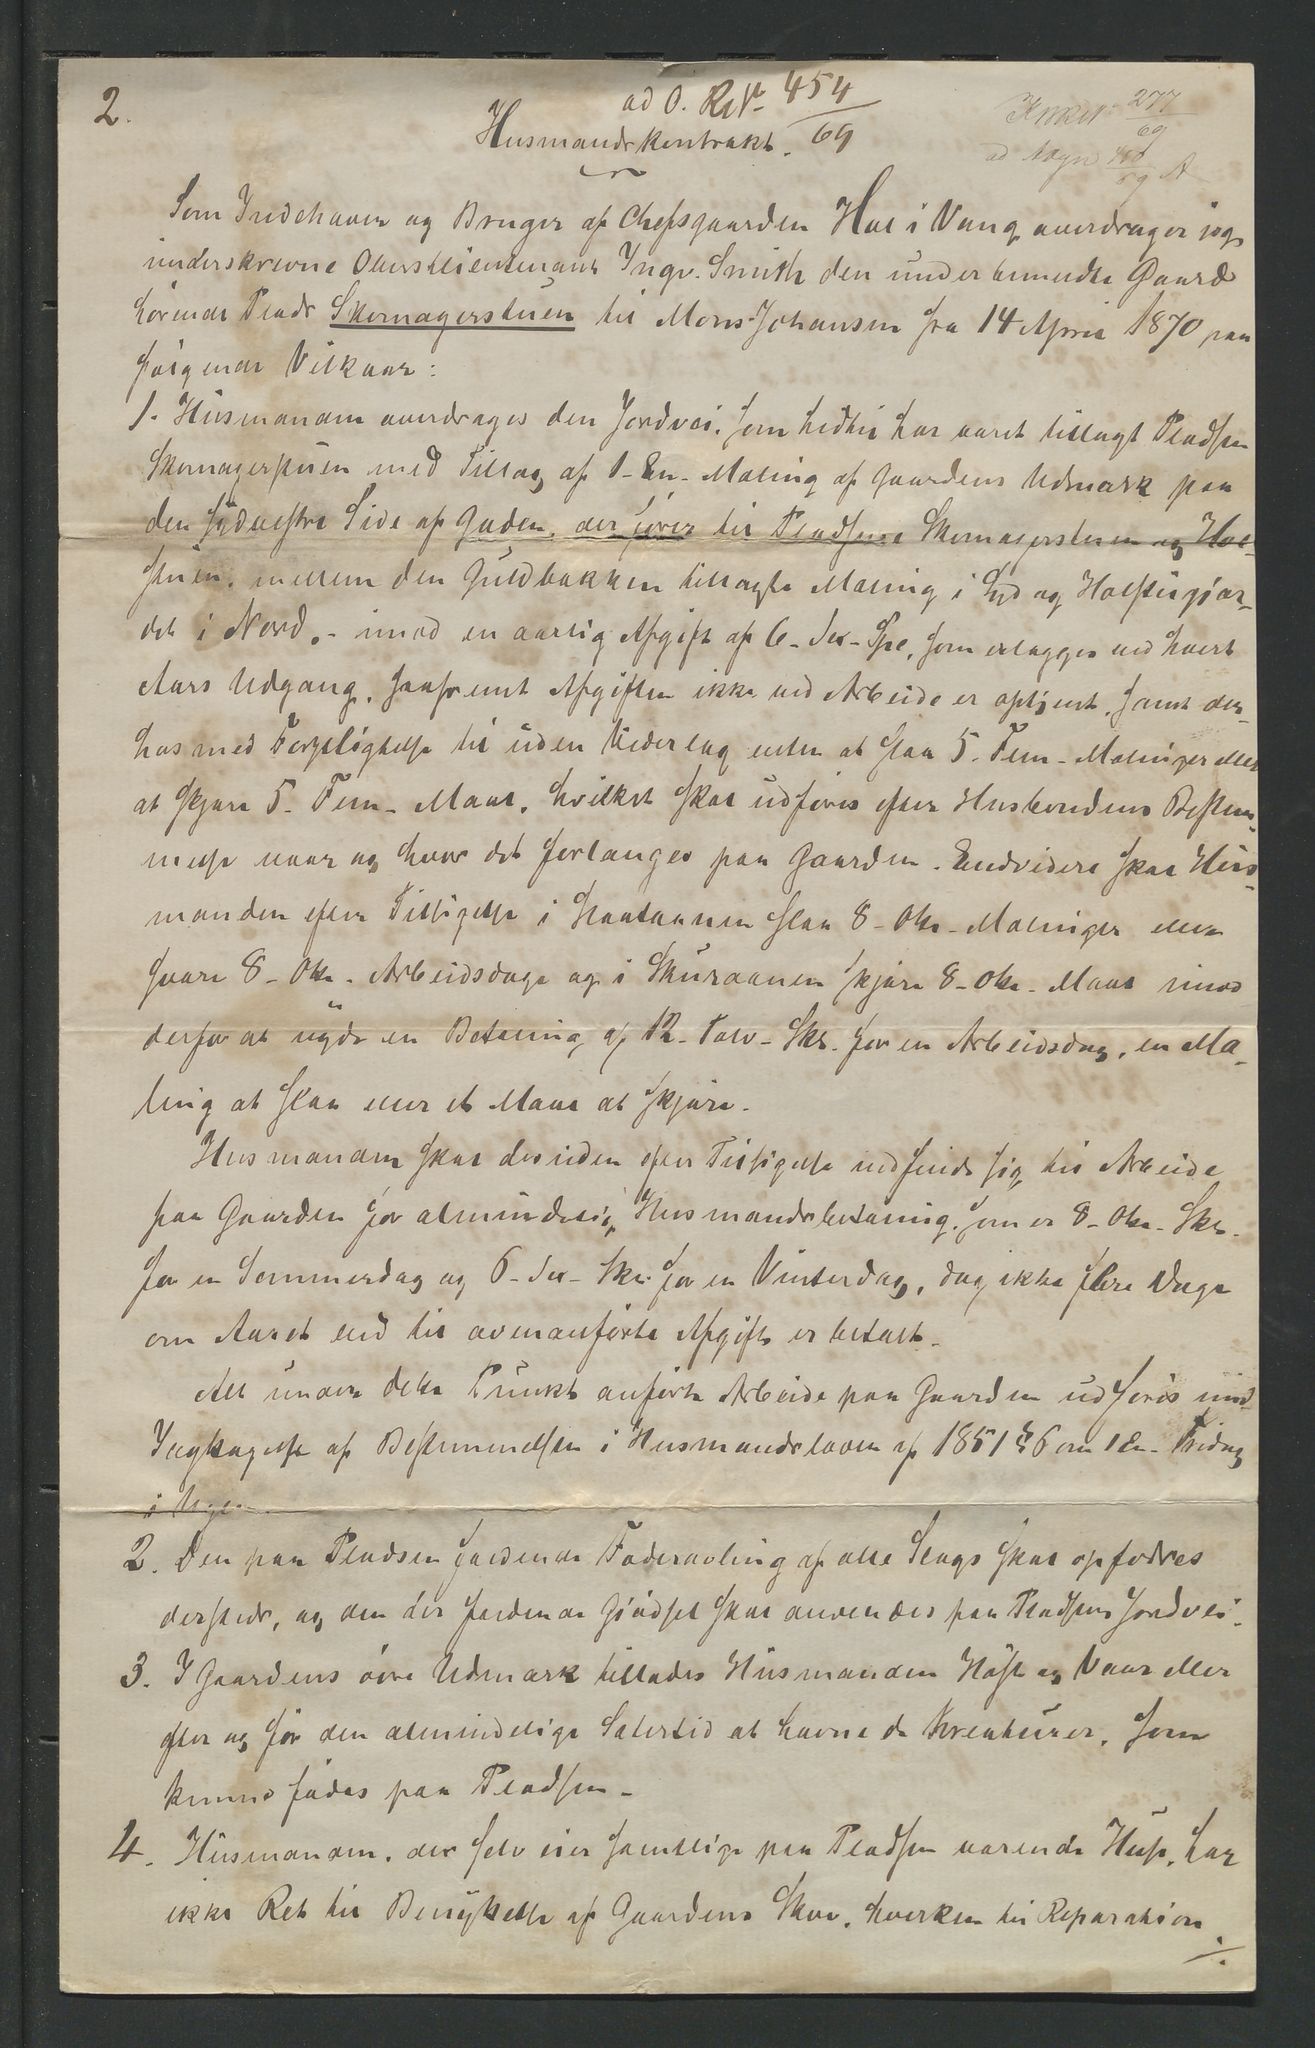 2.
ad O. Rest. 454/69
Husmandskontrakt.
277/69
ad
Som Indehaver og Bruger af Chefsgaarden Hol i Vang overdrager jeg
underskrevne Oberstlieutenant Ingv. Smith den underbemeldte Gaard
hörende Plads Skomagerstuen til Mons Johansen fra 14 April 1870 paa
fölgende Vilkaar:
1. Husmanden overdrages den Jordvei, som hidtil har været tillagt Pladsen
Skomagerstuen med Tillæg af 1 - En - Maling af Gaardens Udmark paa
den sydvestre Side af Gaden, der förer til Pladsene Skomagerstuen og Hol-
stuen, mellem den Guldbakken tillagte Maling i Syd og Holstugjær-
det i Nord, - imod en aarlig Afgift af 6 - Sex - Spd, som erlægges ved hvert
Aars Udgang, saafremt Afgiften ikke ved Arbeide er optjent, samt der-
hos med Forpligtelse til uden Vederlag enten at slaa 5 - Fem - Malinger eller
at skjære 5 - Fem - Maal, hvilket skal udföres efter Husbondens Bestem-
melse naar og hvor det forlanges paa Gaarden. Endvidere skal Hus-
manden efter Tilsigelse i Slaataannen slaa 8 - Otte - Malinger eller
svare 8 - Otte - Arbeidsdage og i Skuraannen skjære 8 - Otte - Maal imod
derfor at nyde en Betaling af 12 - Tolv - Skl. for en Arbeidsdag, en Ma-
ling at slaa eller et Maal at skjære.
Husmanden skal desuden efter Tilsigelse indfinde sig til Arbeide
paa Gaarden for almindelig Husmandsbetaling, som er 8 - Otte - Skl.
for en Sommerdag og 6 - Sex - Skl. for en Vinterdag, dog ikke flere Dage
om Aaret end til ovenanförte Afgift er betalt.
Alt under dette Punkt anförte Arbeide paa Gaarden udföres med
Iagttagelse af Bestemmelsen i Husmandsloven af 1851 § 6 om 1 En - Fridag
i Ugen.
2. Den paa Pladsen faldende Foderavling af alle Slags skal opfodres
dersteds, og den der faldende Gjödsel skal anvendes paa Pladsens Jordvei.
3. I Gaardens övre Udmark tillades Husmanden Höst og Vaar eller
efter og för den almindelige Sætertid at havne de Kreaturer, som
kunne födes paa Pladsen.
4. Husmanden, der selv eier samtlige paa Pladsen værende Huse, har
ikke Ret til Benyttelse af Gaardens Skov, hverken til Reparation
./.